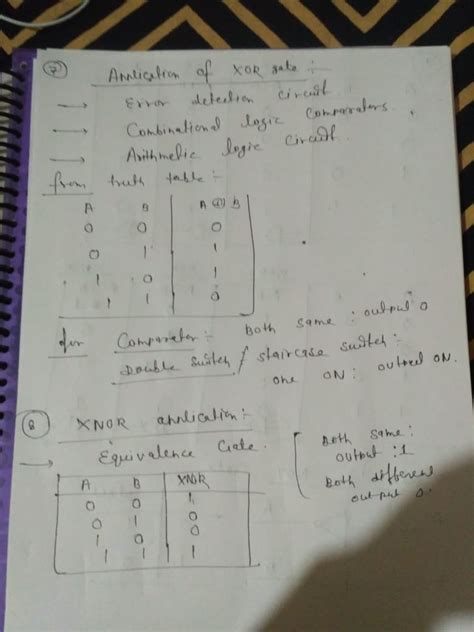 7 Application of XOR gate :-
→ Error detection circuit.
→ Combinational logic comparators.
→ Arithmetic logic circuit.
from truth table :-
A B A ⊕ B
0 0 0
0 1 1
1 0 1
1 1 0
for Comparator :- Both same : output 0
Double switch / staircase switch :-
one ON : output ON.
8 XNOR application :-
→ Equivalence Gate.
A B XNOR
0 0 1
0 1 0
1 0 0
1 1 1
Both same :
output : 1
Both different
output 0.